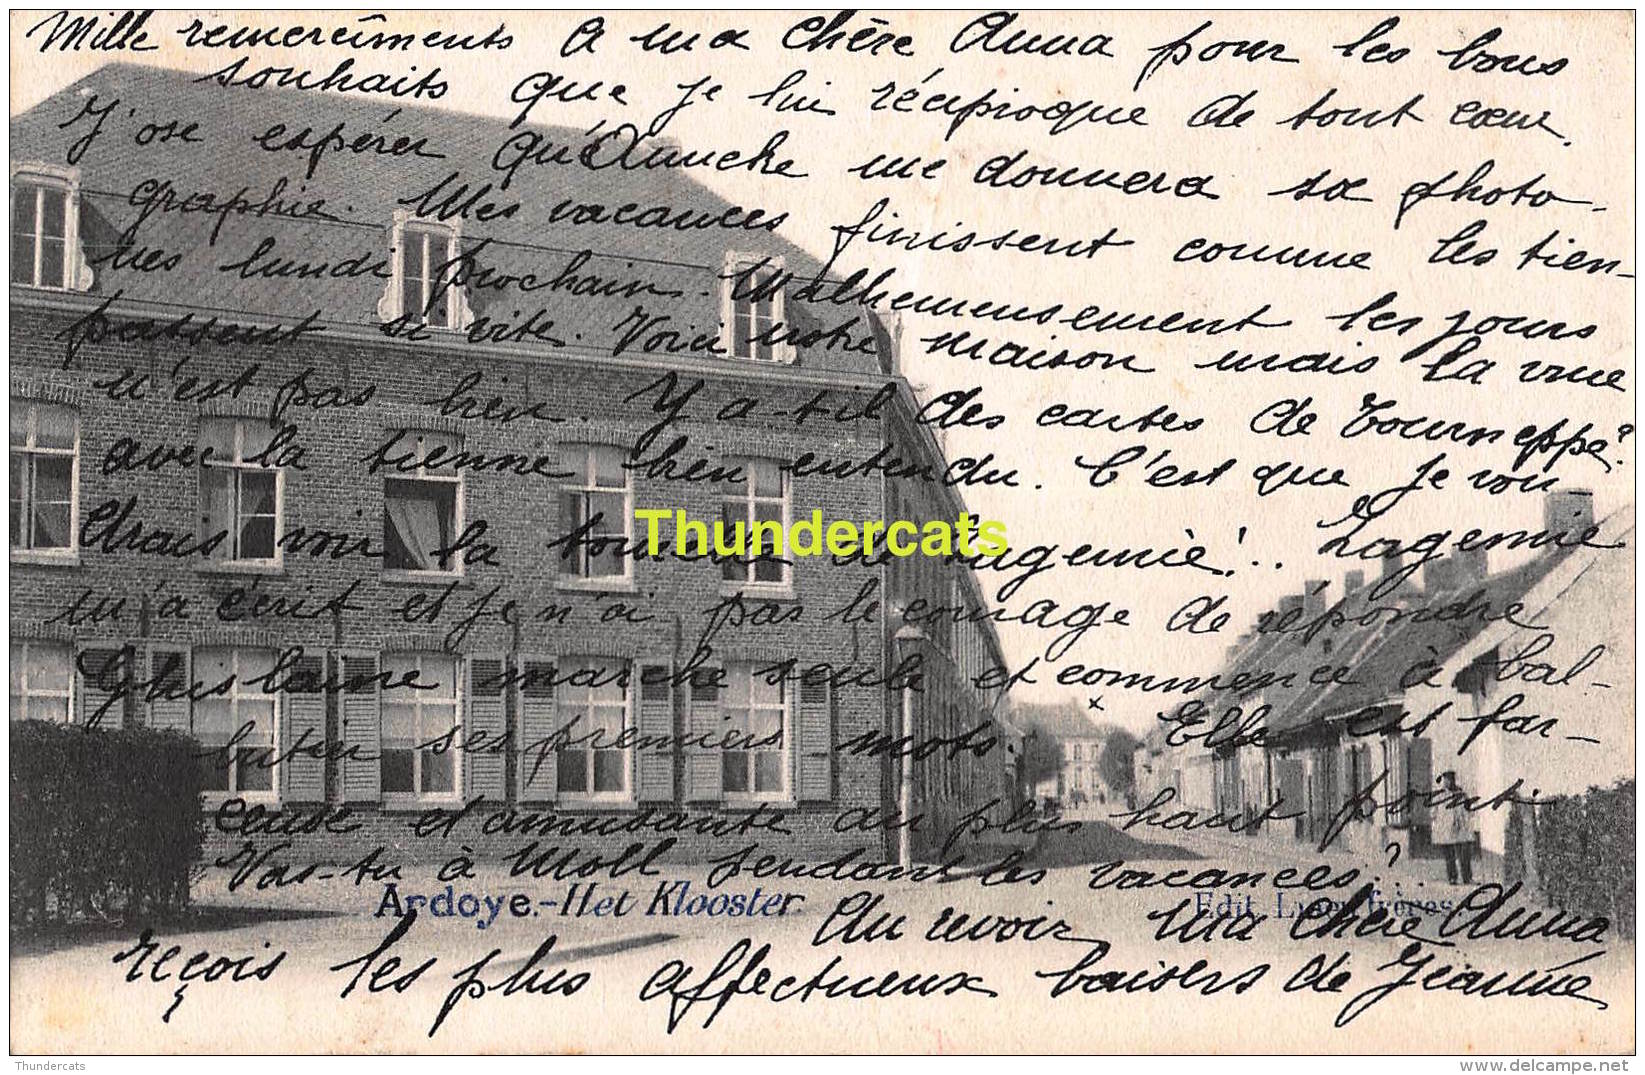 Mille remercîments à ma chère Anna pour les bons
souhaits que je lui réciproque de tout cœur.
J'ose espérer qu'Annche me donnera sa photo-
graphie. Mes vacances finissent comme les tien-
nes lundi prochain. Malheureusement les jours
passent si vite. Voici notre maison mais la vue
n'est pas bien. Y a-t-il des cartes de Tourneppe?
avec la tienne bien entendu. C'est que je vou-
drais voir la de Eugenie!.. Eugenie
m'a écrit et je n'ai pas le courage de répondre
Ghislaine marche seule et commence à bal-
butier ses premiers mots. Elle est far-
ceuse et amusante au plus haut point
Vas-tu à Moll pendant les vacances?
Au revoir, ma chère Anna
reçois les plus affectueux baisers de Jeanne
Ardoye.-Het Klooster.
Edit. frères.
Thundercats
Thundercats
www.delcampe.net